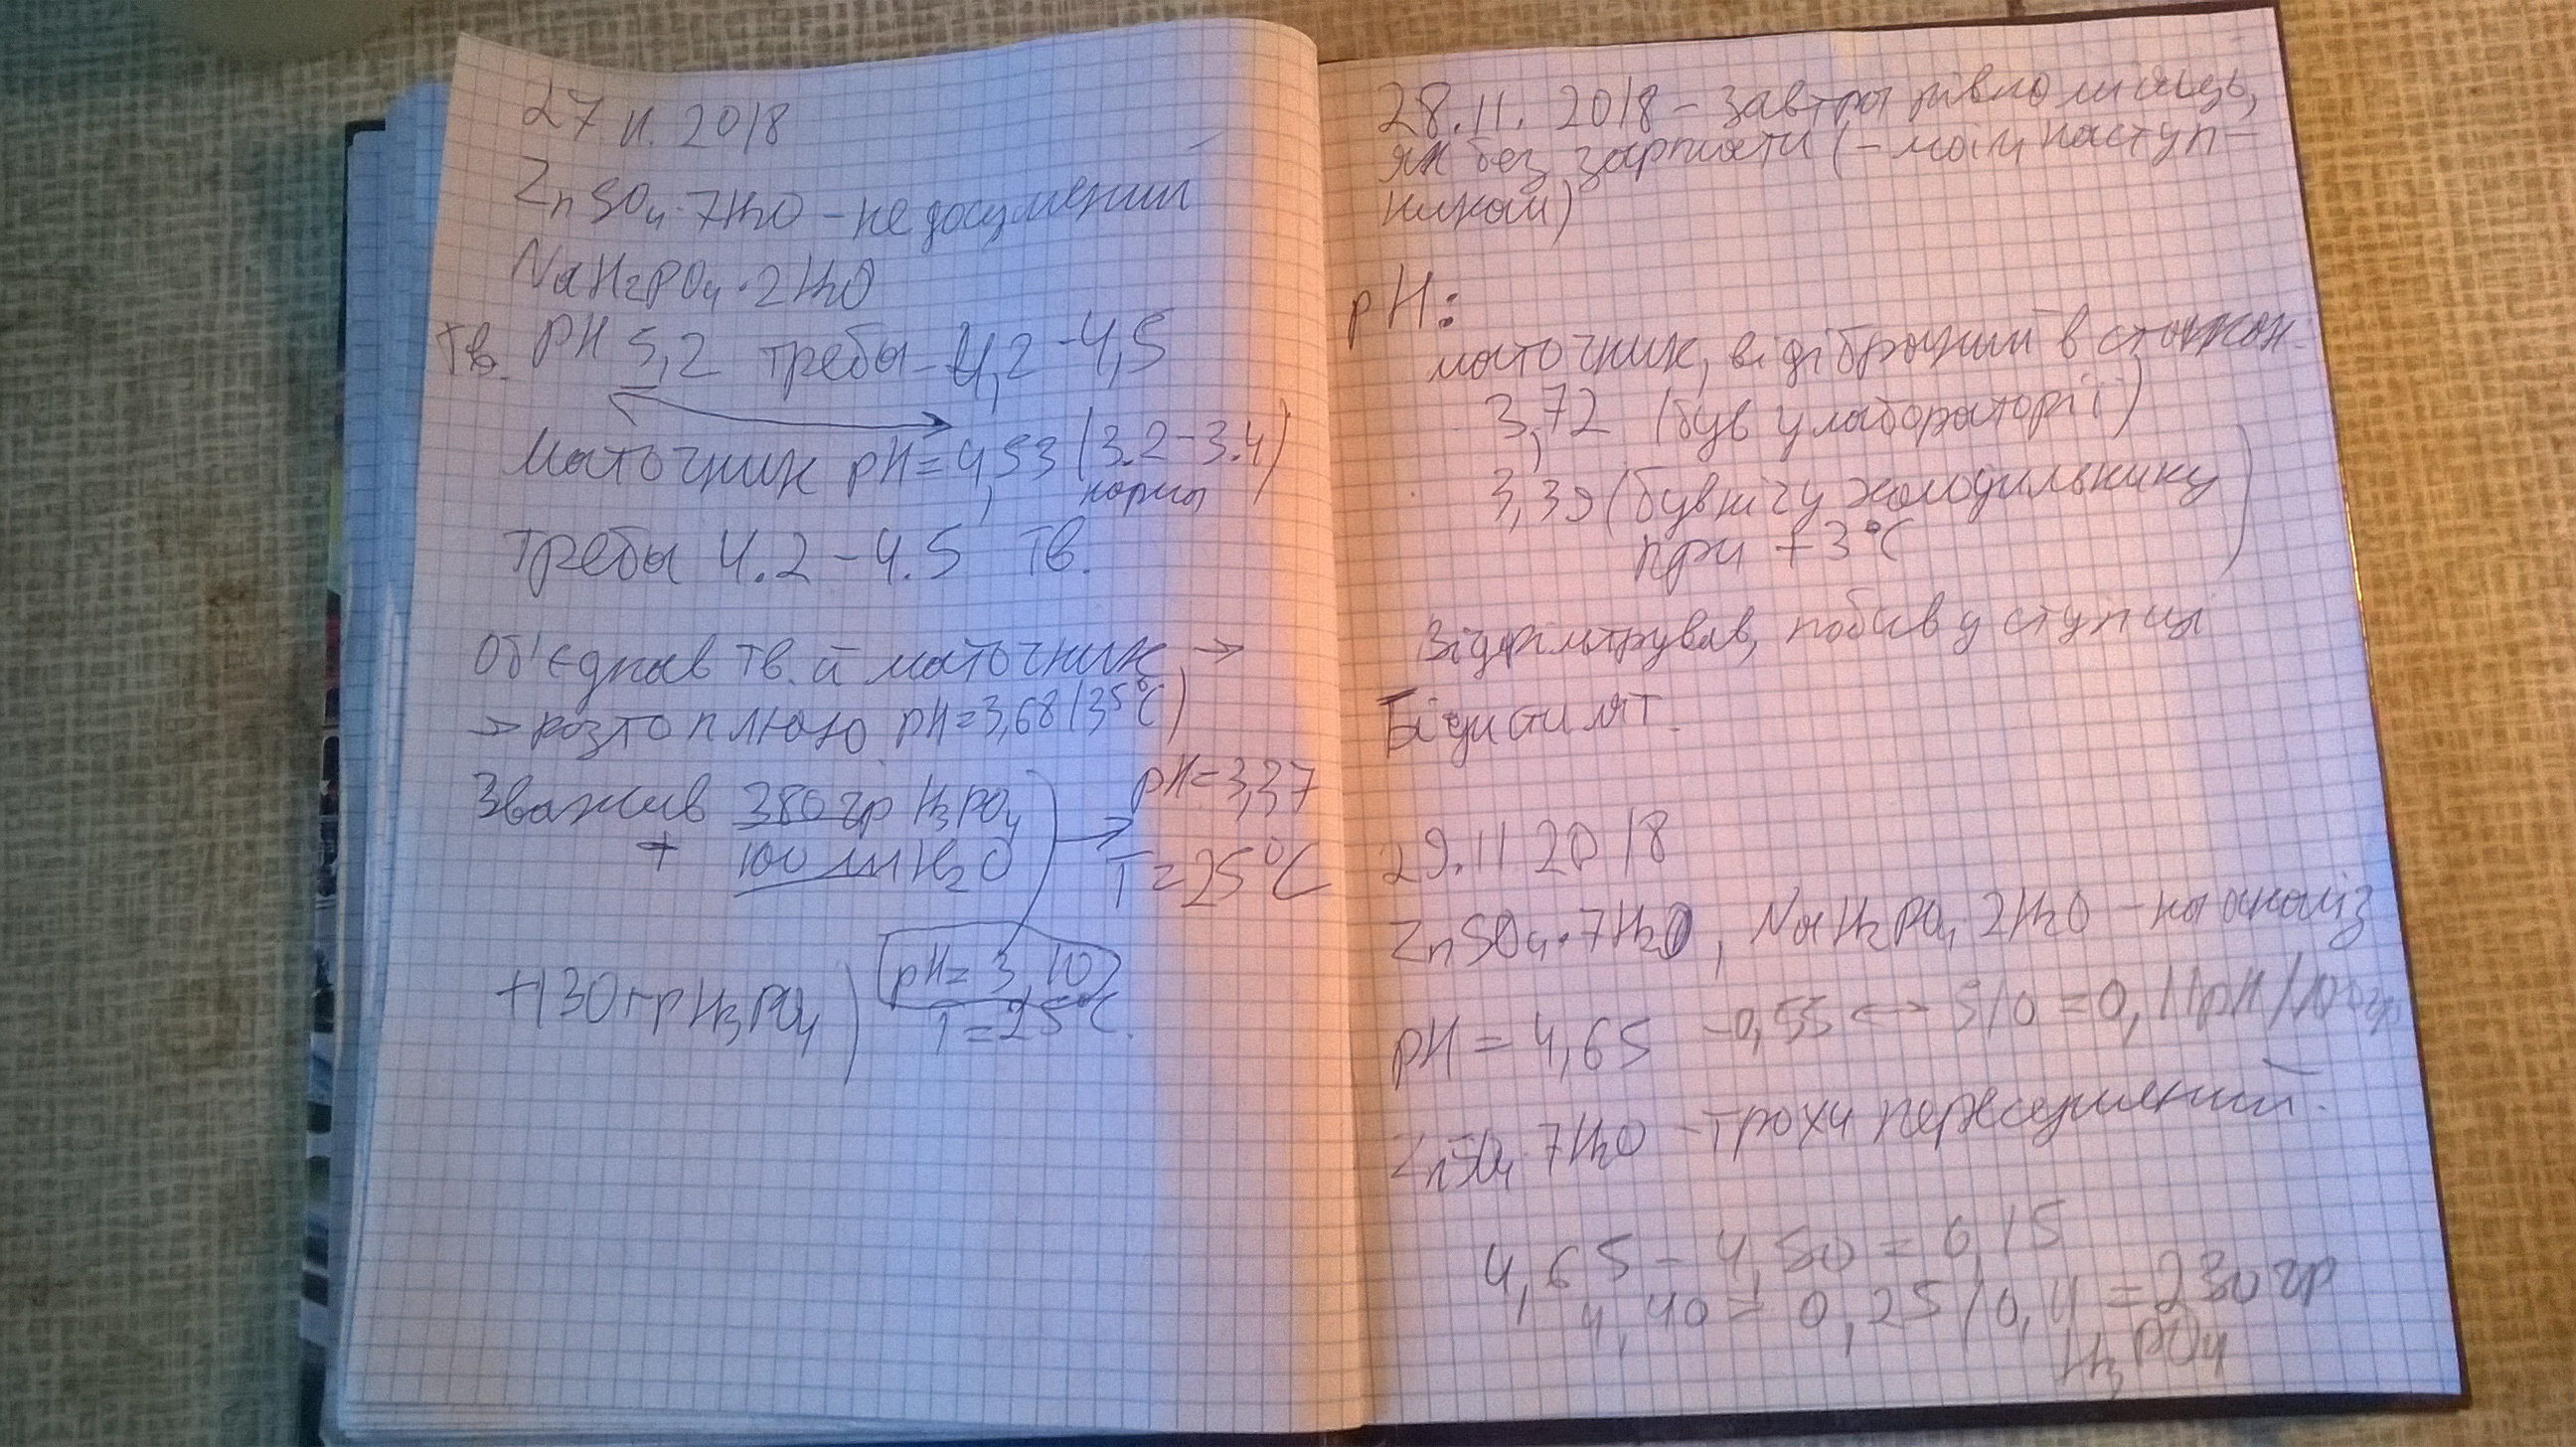 27.11.2018
ZnSO4·7H2O – недосушений
NaH2PO4·2H2O
Тв. pH 5,2 треба – 4,2 – 4,5
Маточник pH = 4,53 (3.2 – 3.4)
норма
треба 4.2 – 4.5 тв.
Об'єднав тв. й маточник →
→ розтоплюю pH = 3,68 (35°C)
Зважив 380 гр H3PO4
+ 100 мл H2O
pH = 3,37
T = 25°C
+130 гр H3PO4) pH = 3,10
T = 25°C.
28.11. 2018 – завтра рівно місяць,
як без зарплати (– моїм наступ–
никам)
pH:
маточник, відібраний в стакан:
3,72 (був у лабораторії)
3,39 (був ніч у холодильнику
при +3°C
Відфільтрував, побив у ступці
Бідистилят.
29.11 2018
ZnSO4·7H2O, NaH2PO4 2H2O – на аналіз
pH = 4,65 –0,55 ↔ 510 = 0,11pH/100гр
ZnSO4 7H2O – трохи пересушений.
4,65 – 4,50 = 0,15
4,40 = 0,25/0,11 = 230 гр
H3PO4